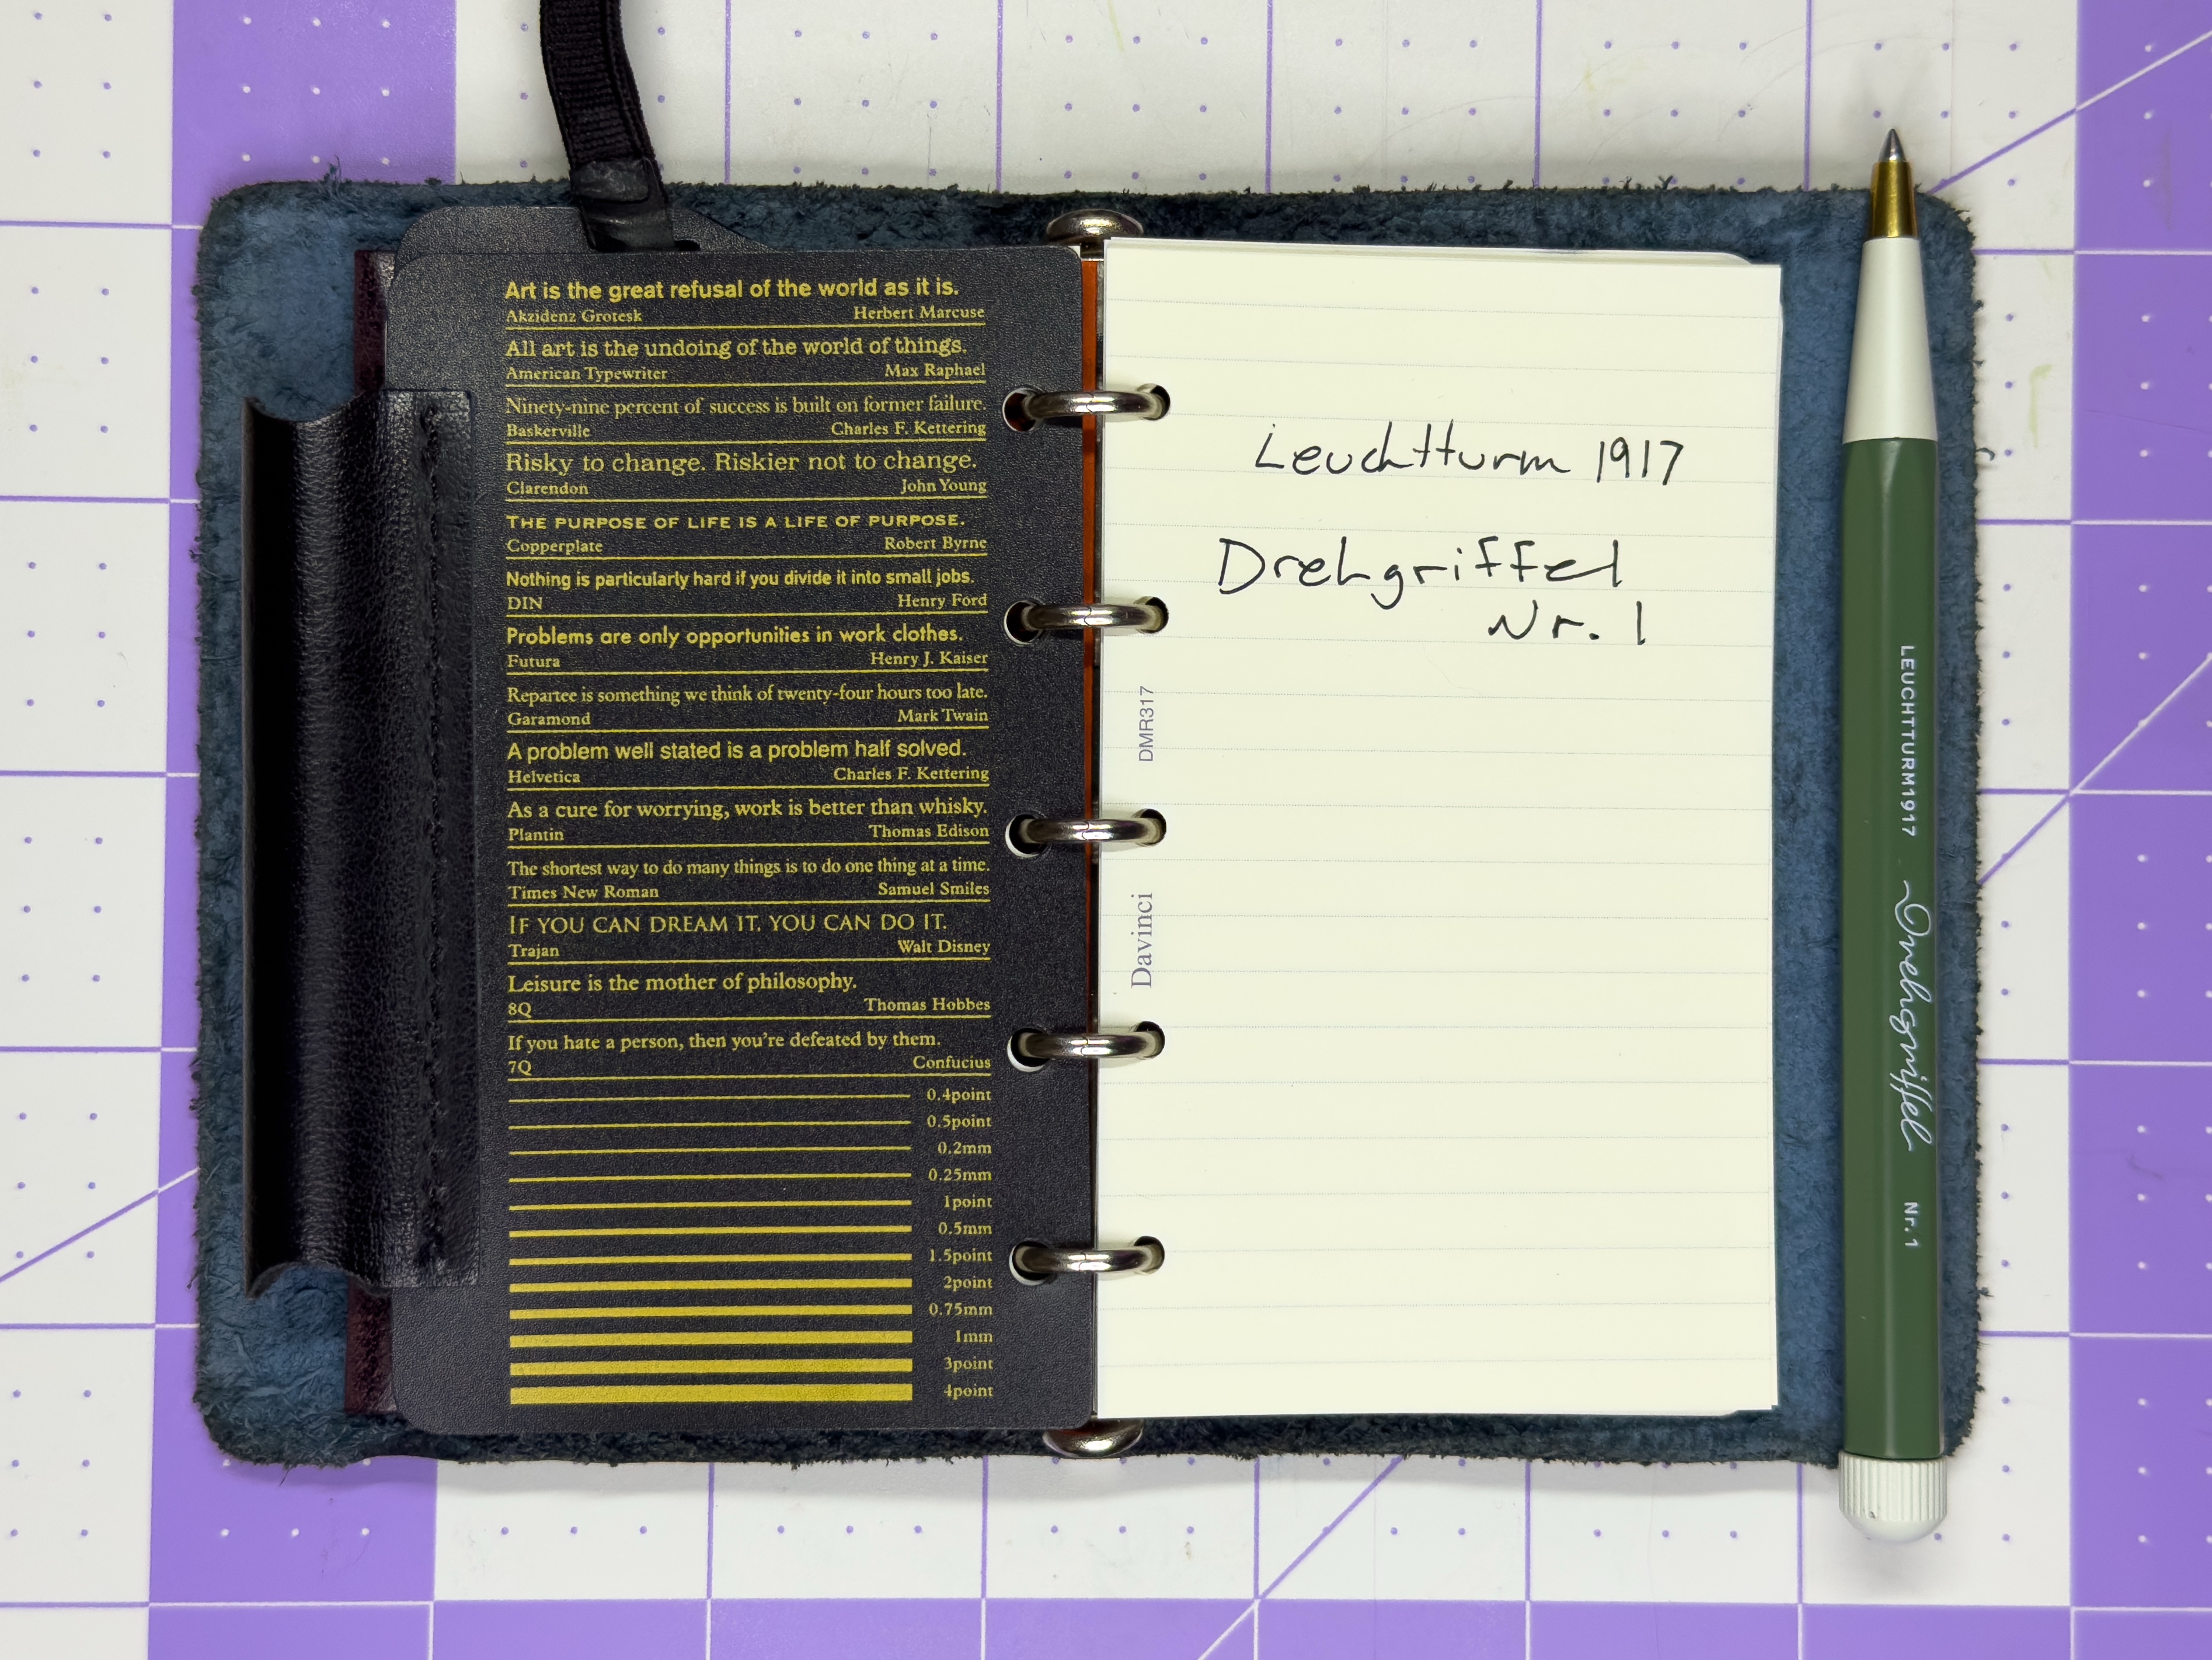 Art is the great refusal of the world as it is.
Akzidenz Grotesk Herbert Marcuse
All art is the undoing of the world of things.
American Typewriter Max Raphael
Ninety-nine percent of success is built on former failure.
Baskerville Charles F. Kettering
Risky to change. Riskier not to change.
Clarendon John Young
THE PURPOSE OF LIFE IS A LIFE OF PURPOSE.
Copperplate Robert Byrne
Nothing is particularly hard if you divide it into small jobs.
DIN Henry Ford
Problems are only opportunities in work clothes.
Futura Henry J. Kaiser
Repartee is something we think of twenty-four hours too late.
Garamond Mark Twain
A problem well stated is a problem half solved.
Helvetica Charles F. Kettering
As a cure for worrying, work is better than whisky.
Plantin Thomas Edison
The shortest way to do many things is to do one thing at a time.
Times New Roman Samuel Smiles
IF YOU CAN DREAM IT, YOU CAN DO IT.
Trajan Walt Disney
Leisure is the mother of philosophy.
8Q Thomas Hobbes
If you hate a person, then you're defeated by them.
7Q Confucius
0.4point
0.5point
0.2mm
0.25mm
1point
0.5mm
1.5point
2point
0.75mm
1mm
3point
4point
Leuchtturm 1917
Drehgriffel
Nr. 1
DMR317
Davinci
LEUCHTTURM1917 Drehgriffel Nr. 1